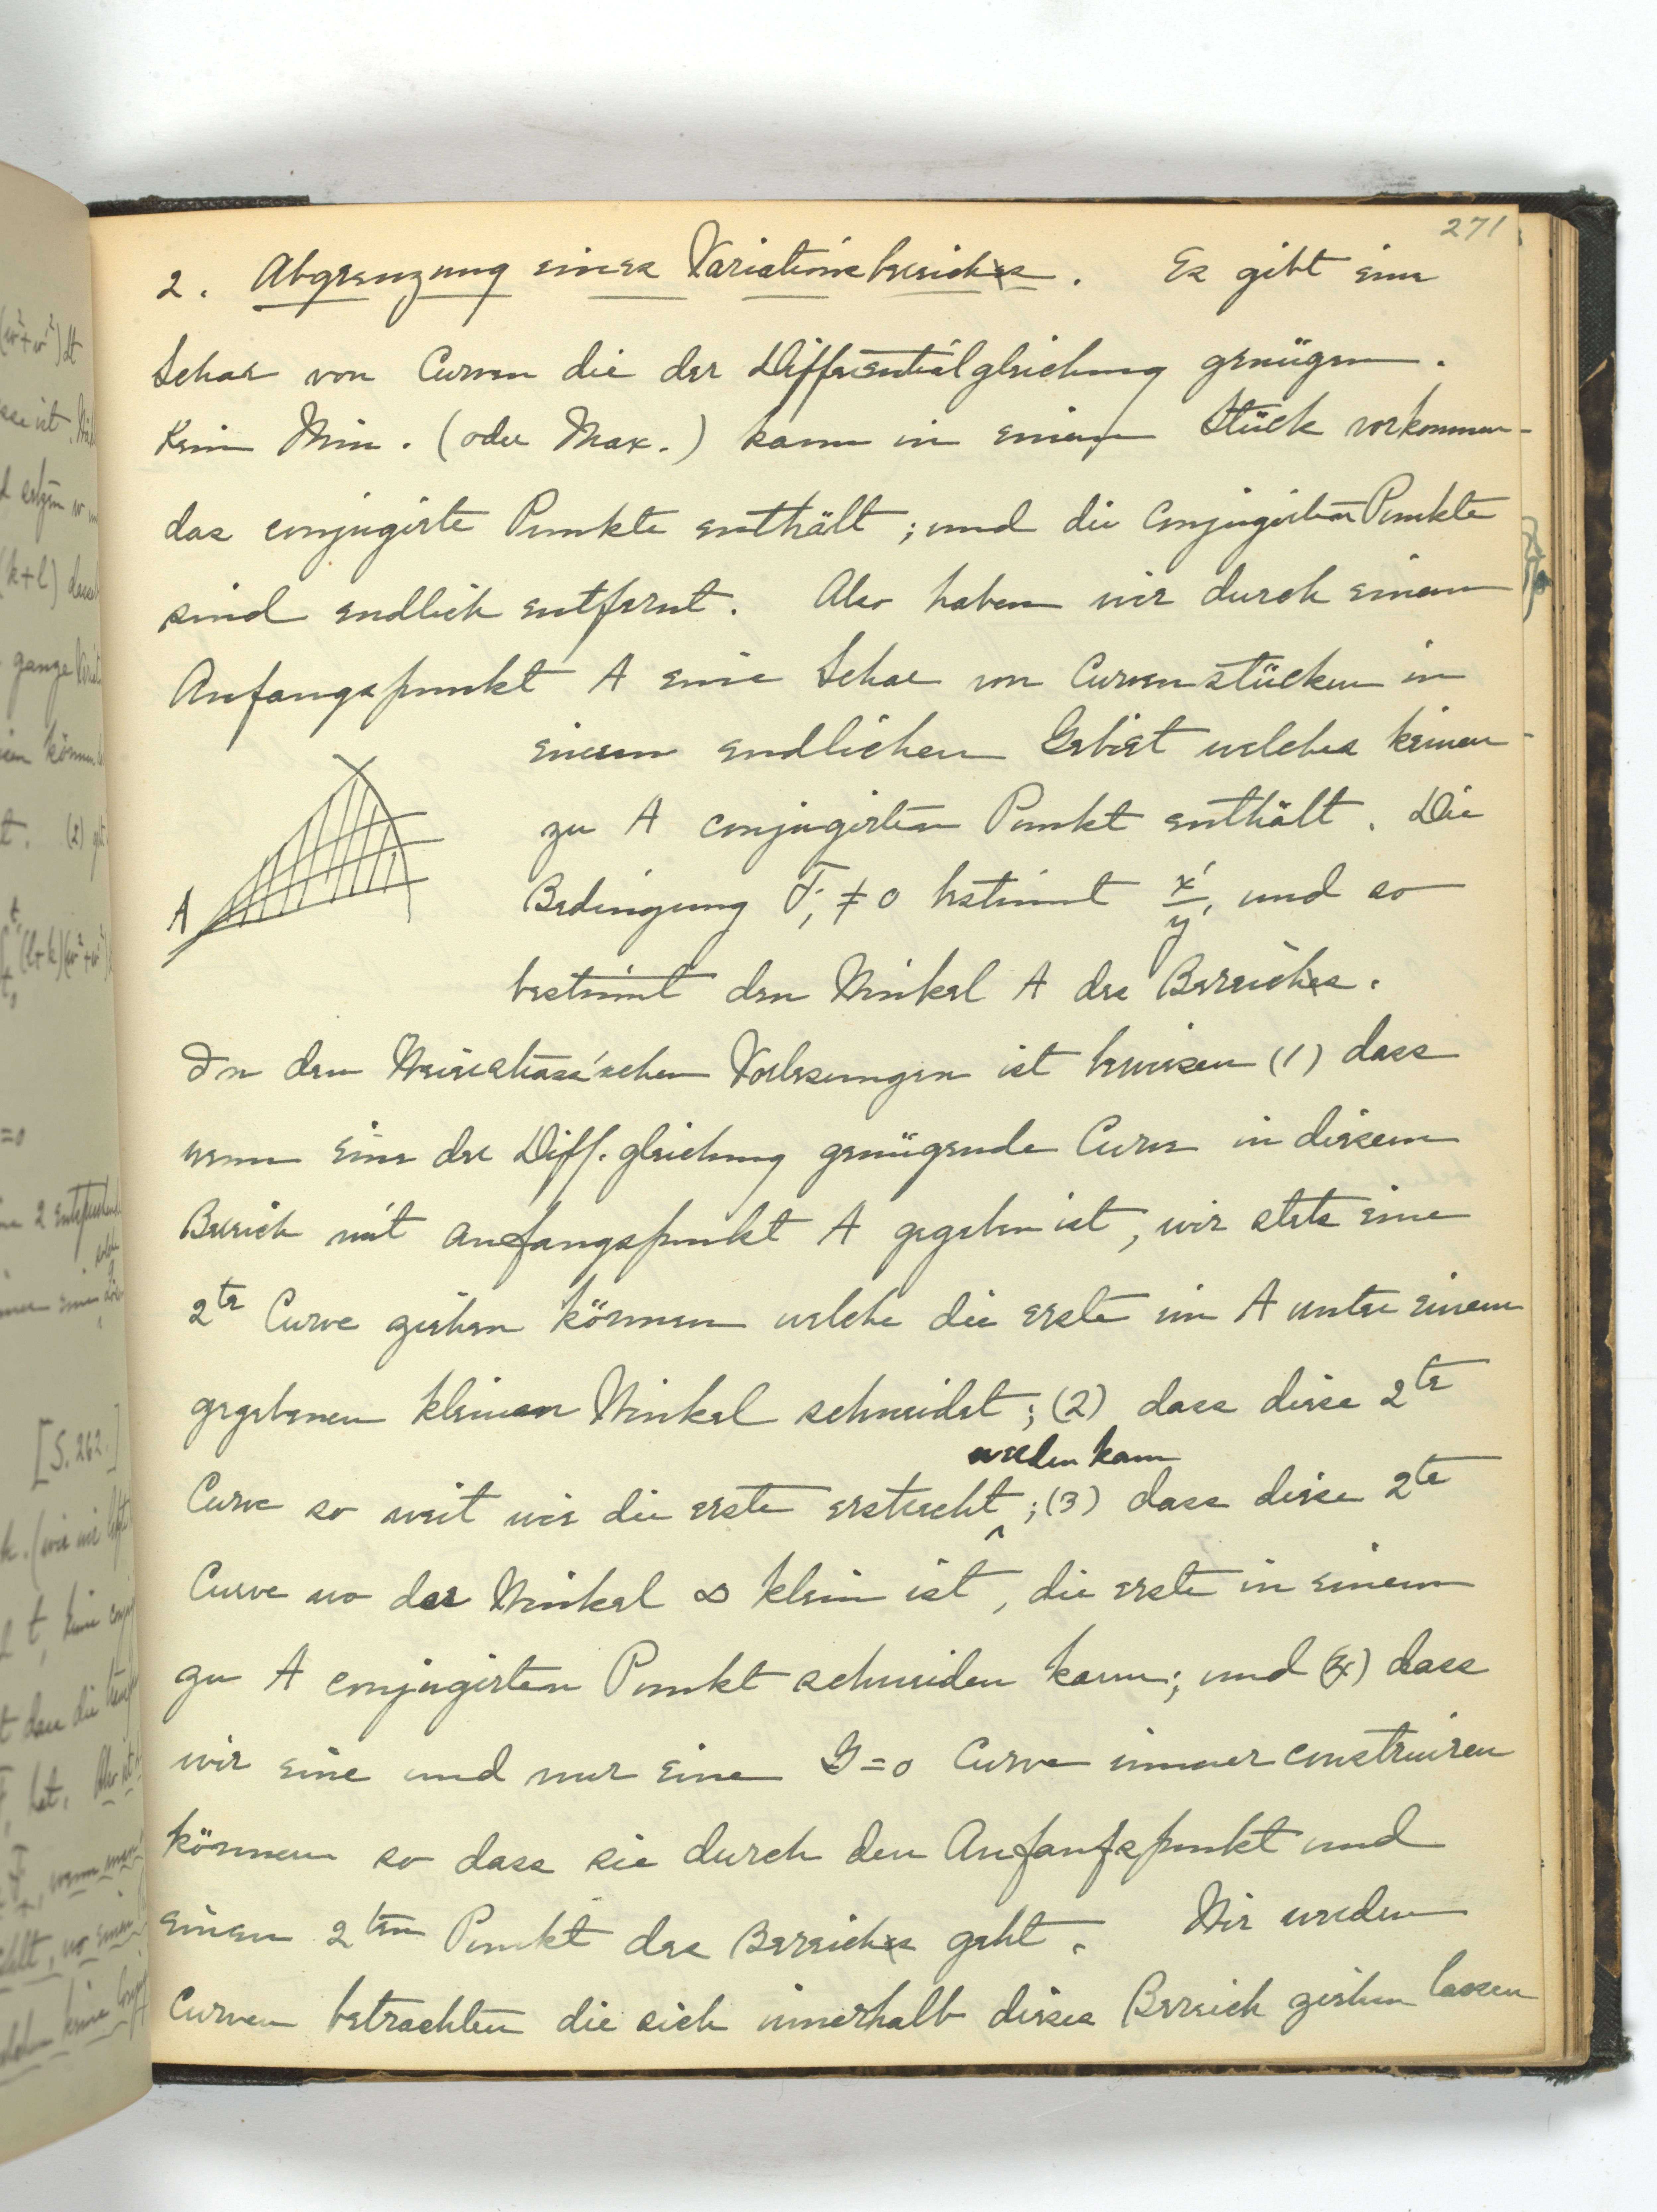 271
2. Abgrenzung eines Variationsbereiches. Es gibt eine
Schar von Curven die der Differentialgleichung genügen.
Kein Min. (oder Max.) kann in einem Stück vorkommen
das conjugirte Punkte enthält; und die conjugirten Punkte
sind endlich entfernt. Also haben wir durch einen
Anfangspunkt A eine Schar von Curvenstücken in
einem endlichen Gebiet welches keinen
zu A conjugirten Punkt enthält. Die
A
Bedingung F₁ ≠ 0 bestimmt x'/y', und so
bestimmt den Winkel A des Bereiches.
In den Weierstrass'schen Vorlesungen ist bewiesen (1) dass
wenn eine der Diff.gleichung genügende Curve in diesem
Bereich mit Anfangspunkt A gegeben ist, wir stets eine
2te Curve ziehen können welche die erste in A unter einem
gegebenen kleinen Winkel schneidet; (2) dass diese 2te
werden kann
Curve so weit wie die erste erstreckt; (3) dass diese 2te
Curve wo der Winkel ∞ klein ist, die erste in einem
zu A conjugirten Punkt schneiden kann; und (4) dass
wir eine und nur eine G=0 Curve immer construiren
können so dass sie durch den Anfanfspunkt und
einen 2ten Punkt des Bereiches geht. Wir werden
Curven betrachten die sich innerhalb dieses Bereich ziehen lassen
[S. 262.]